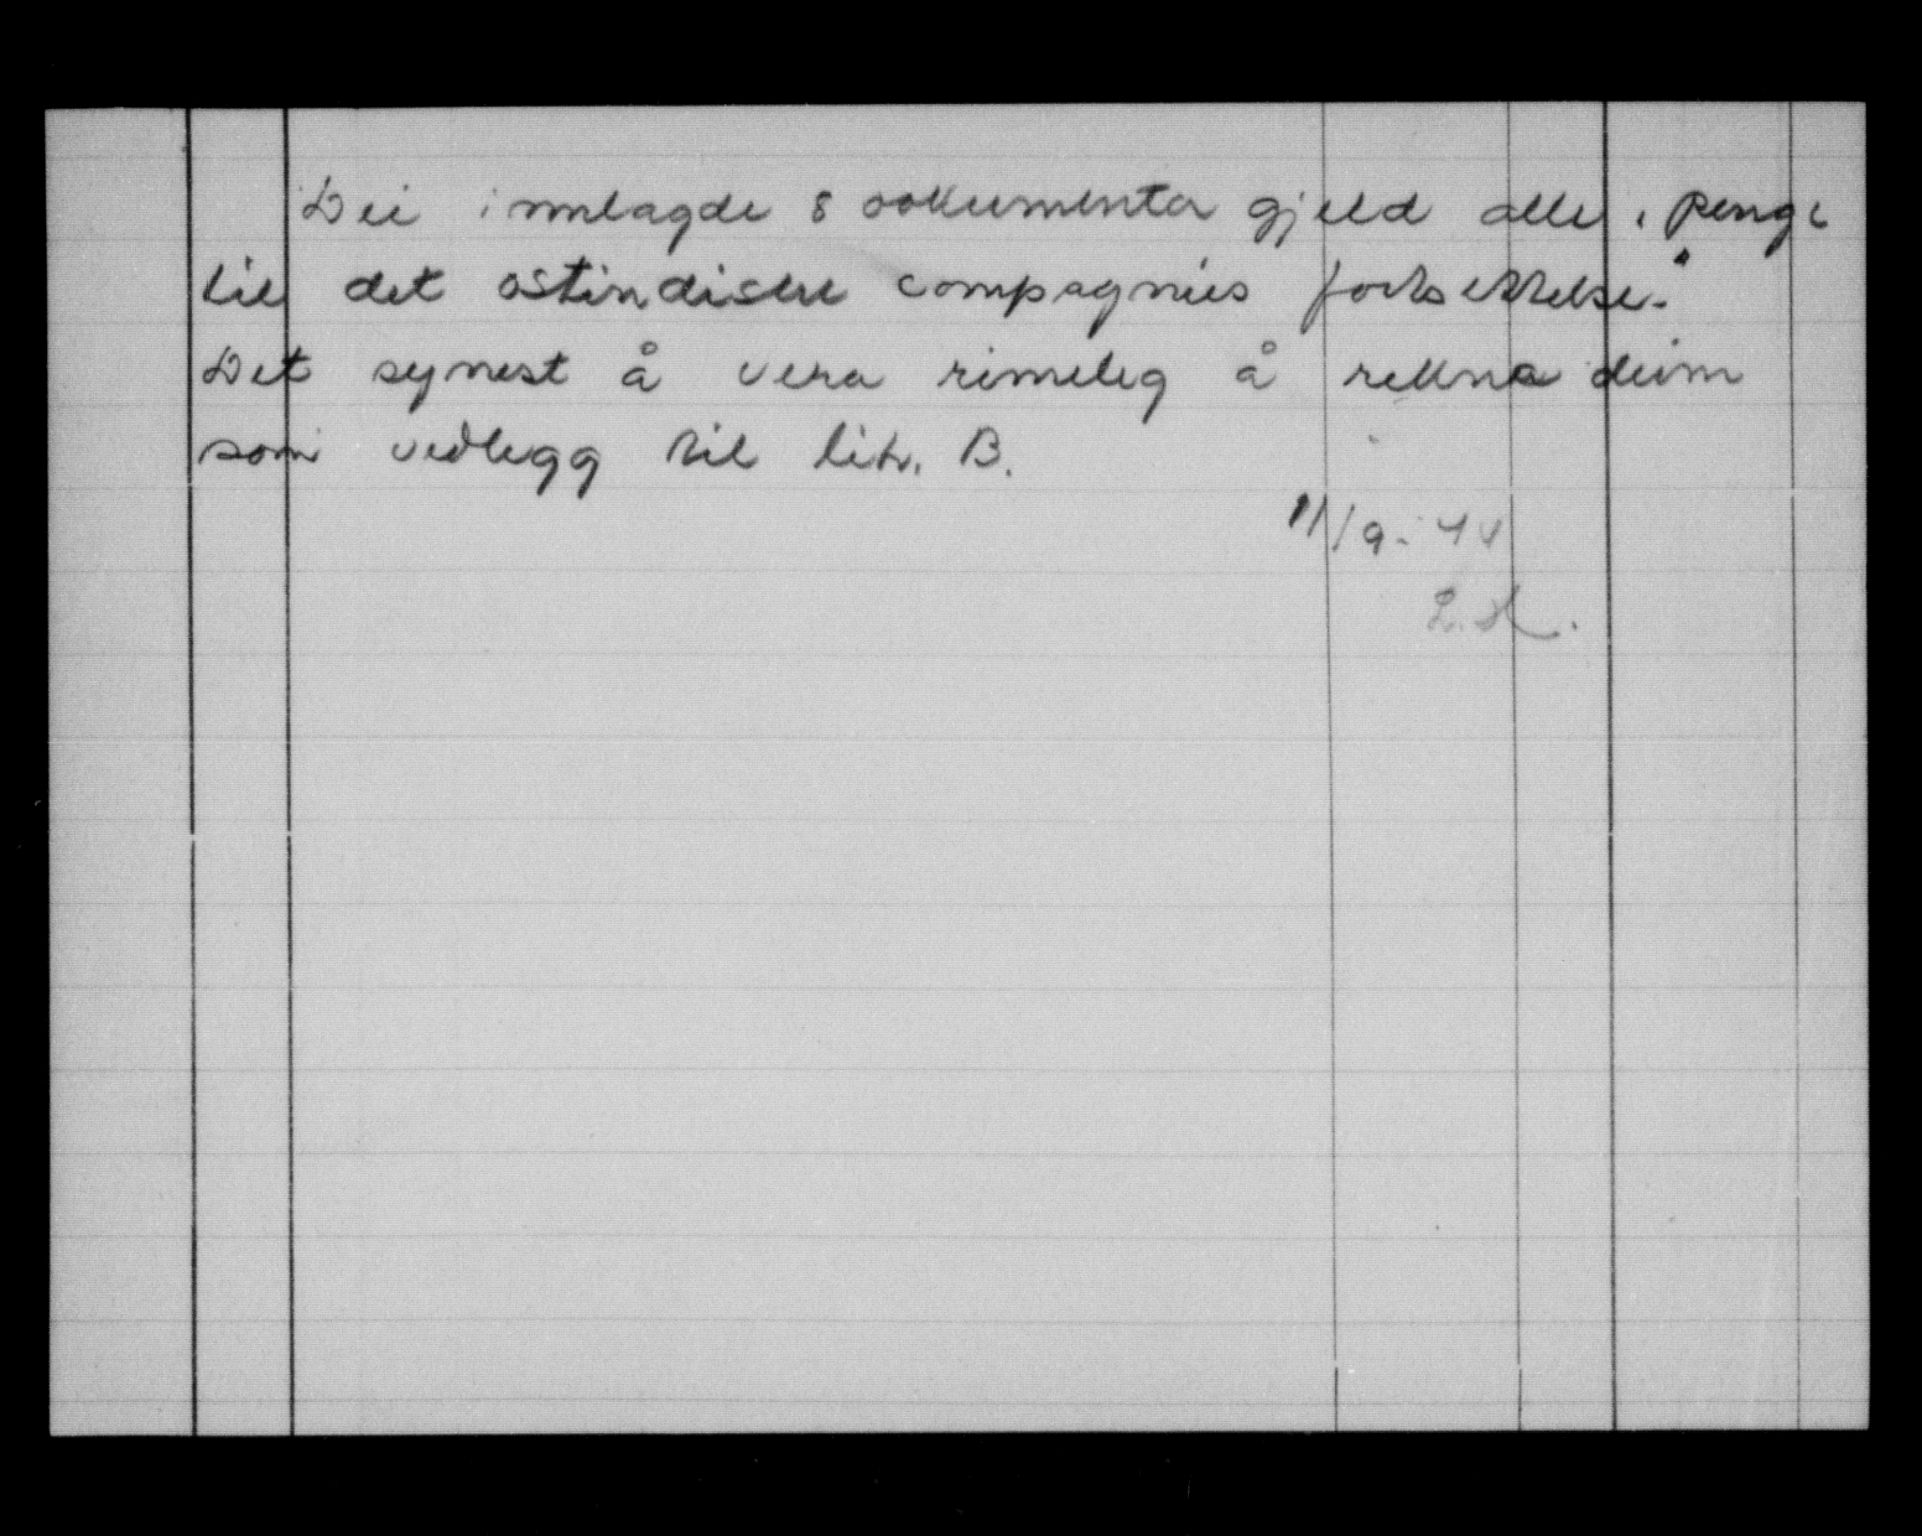 Dei innlagde 8 dokumenta gjeld alle "penge
til det ostindiske compagnies fortsettelse."
Det synest å vera rimeleg å rekna deim
som vedlegg til lit. B.
11/9-44